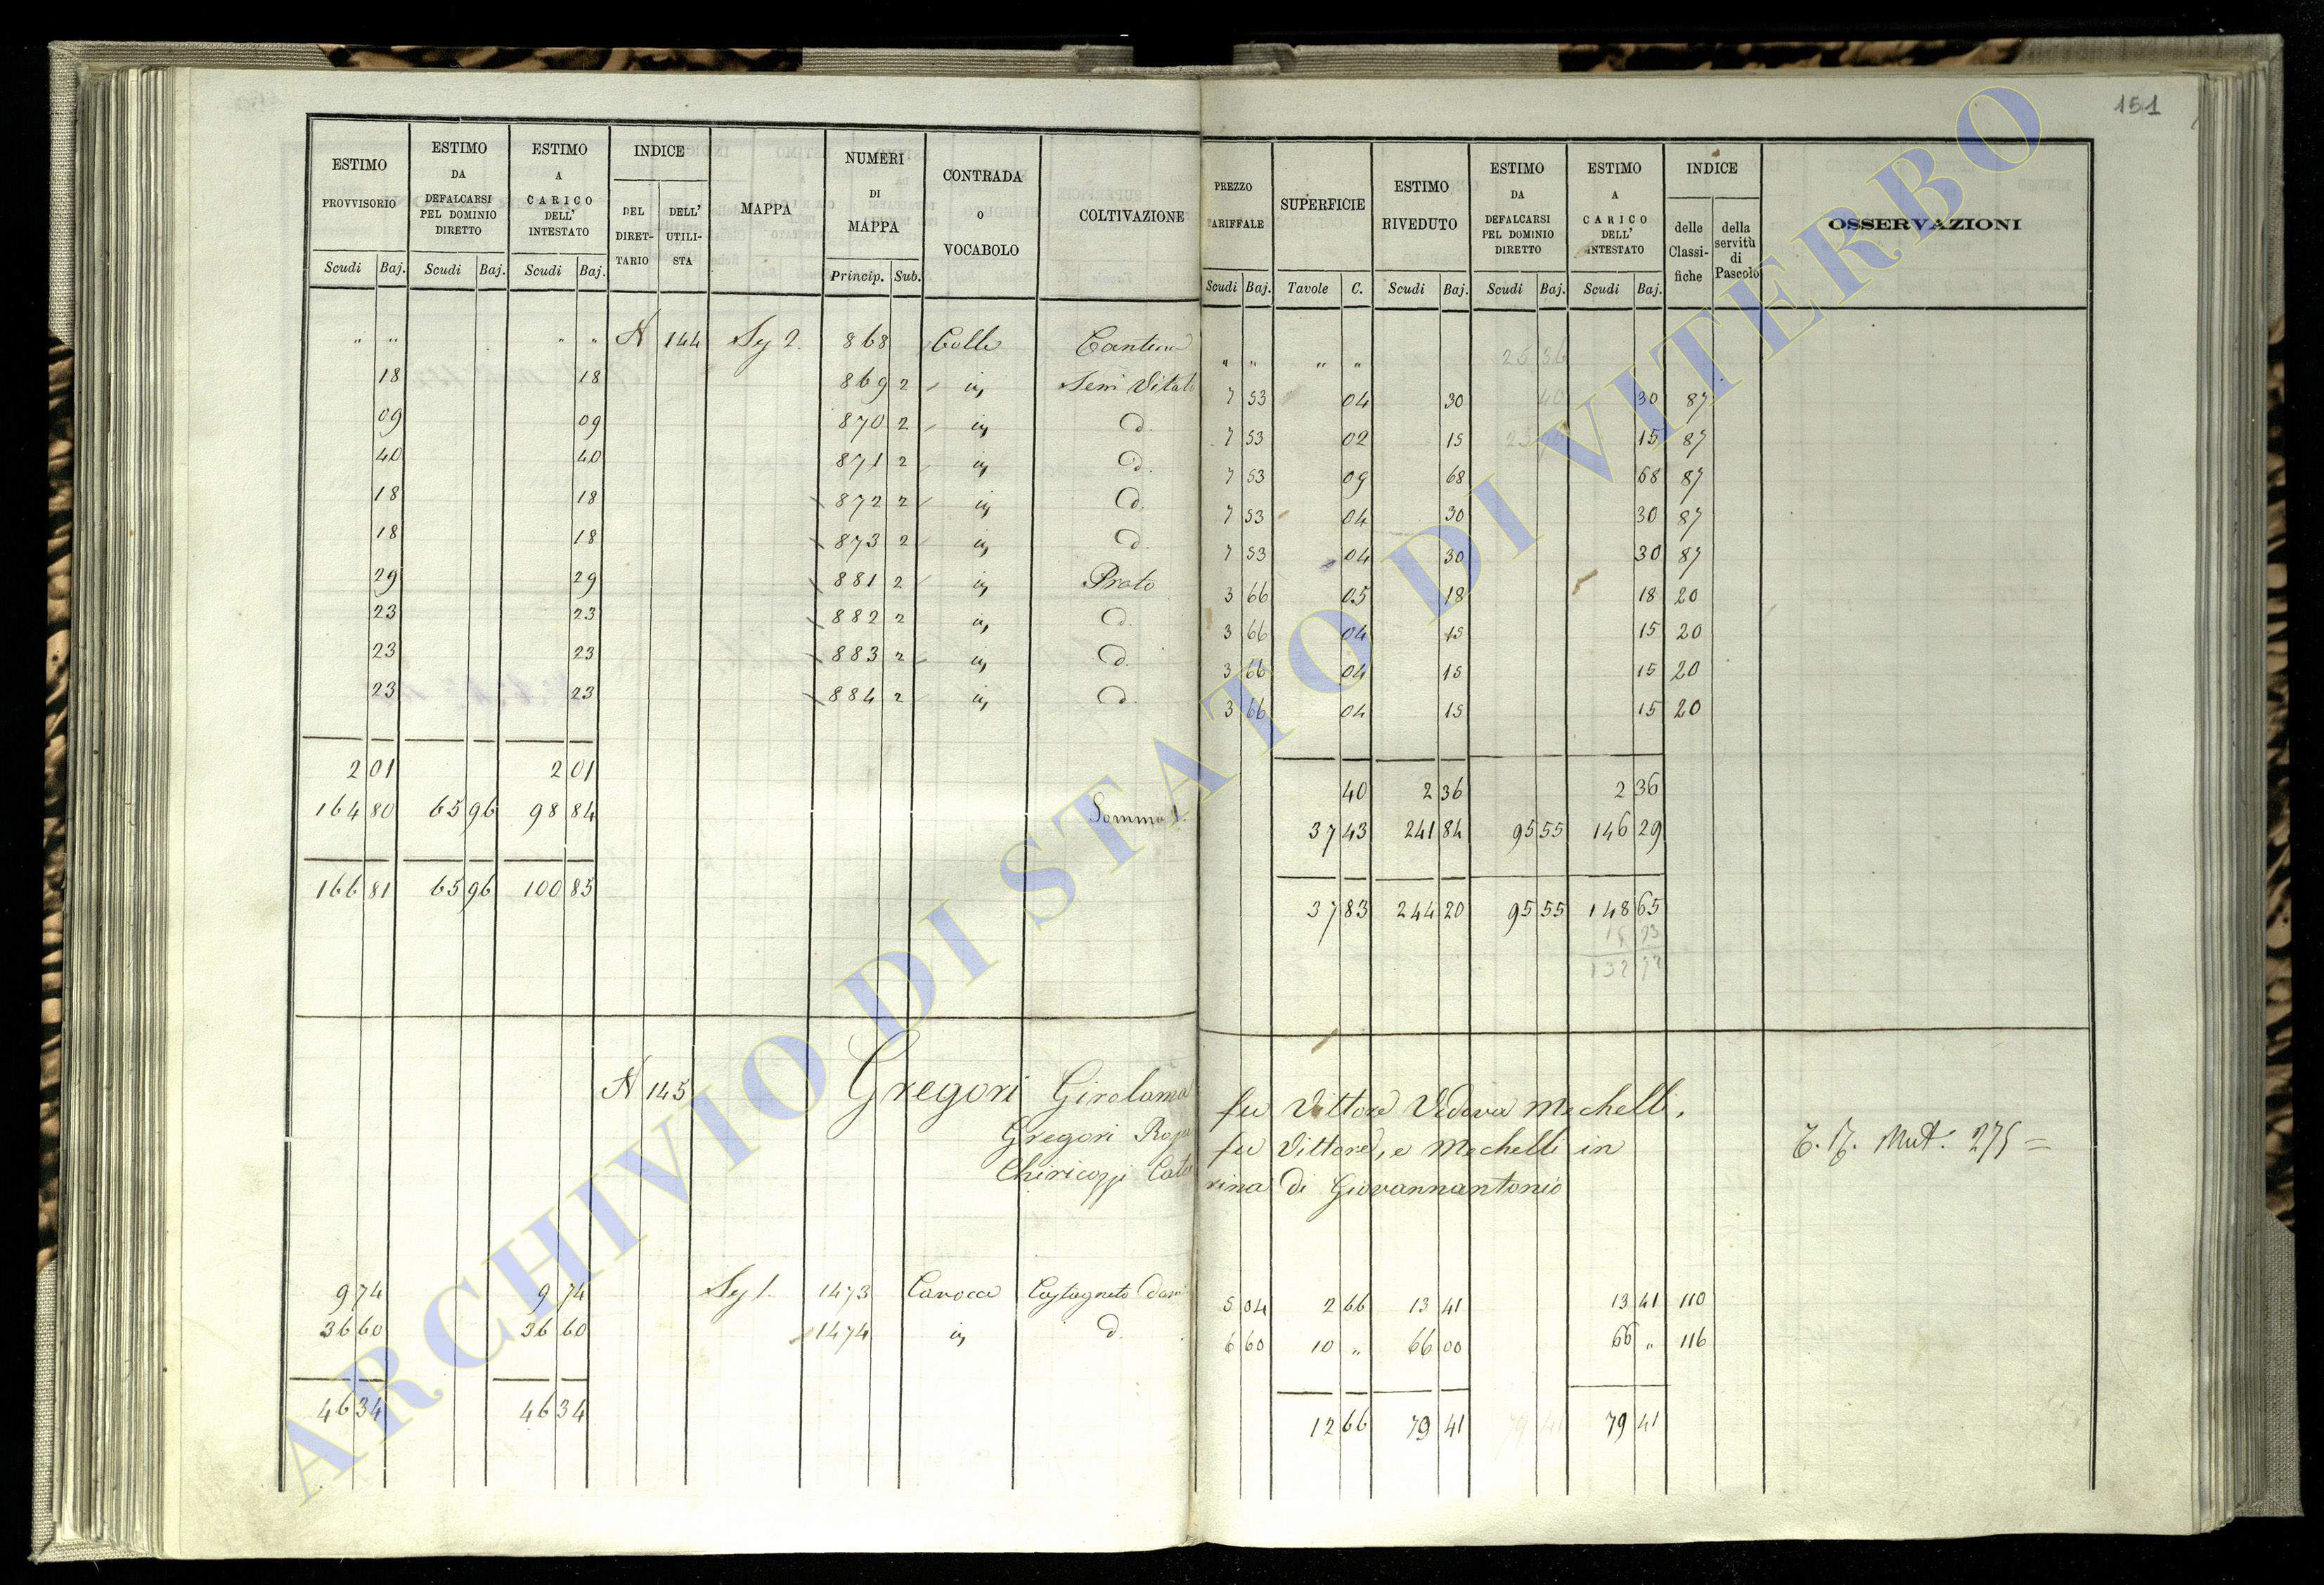 151
ESTIMO PROVVISORIO | ESTIMO DA DEFALCARSI PEL DOMINIO DIRETTO | ESTIMO A CARICO DELL' INTESTATO | INDICE | MAPPA | NUMERI DI MAPPA | CONTRADA o VOCABOLO | COLTIVAZIONE | PREZZO TARIFFALE | SUPERFICIE | ESTIMO RIVEDUTO | ESTIMO DA DEFALCARSI PEL DOMINIO DIRETTO | ESTIMO A CARICO DELL' INTESTATO | INDICE | OSSERVAZIONI
DEL DIRETTARIO | DELL' UTILISTA | delle Classifiche | della servitù di Pascolo
Scudi | Baj. | Scudi | Baj. | Scudi | Baj. | Princip. | Sub. | Scudi | Baj. | Tavole | C. | Scudi | Baj. | Scudi | Baj. | Scudi | Baj.
" " | " " | N 144 | Sez 2. | 868 | Colle | Cantina | " " | " " | 25 36
18 | 18 | 869 2 | id | Sem Vitato | 7 53 | 04 | 30 | 40 | 30 | 87
09 | 09 | 870 2 | id | d. | 7 53 | 02 | 15 | 15 | 87
40 | 40 | 871 2 | id | d. | 7 53 | 09 | 68 | 68 | 87
18 | 18 | 872 2 | id | d. | 7 53 | 04 | 30 | 30 | 87
18 | 18 | 873 2 | id | d. | 7 53 | 04 | 30 | 30 | 87
29 | 29 | 881 2 | id | Prato | 3 66 | 05 | 18 | 18 | 20
23 | 23 | 882 2 | id | d. | 3 66 | 04 | 15 | 15 | 20
23 | 23 | 883 2 | id | d. | 3 66 | 04 | 15 | 15 | 20
23 | 23 | 884 2 | id | d. | 3 66 | 04 | 15 | 15 | 20
2 01 | 2 01 | 40 | 2 36 | 2 36
164 80 | 65 96 | 98 84 | Somma 1. | 37 43 | 241 84 | 95 55 | 146 29
166 81 | 65 96 | 100 85 | 37 83 | 244 20 | 95 55 | 148 65
132
N 145 | Gregori Girolama fu Vittore Vedova Mechelli,
Gregori Rosa fu Vittore, e Mechelli in
Mut. 275 =
Chiricozzi Caterina di Giovannantonio
9 74 | 9 74 | Sez 1. | 1473 | Carocce | Castagneto | 5 04 | 2 66 | 13 41 | 13 41 | 110
36 60 | 36 60 | 1474 | id | d. | 6 60 | 10 " | 66 00 | 66 " | 116
46 34 | 46 34 | 12 66 | 79 41 | 79 41 | 79 41
ARCHIVIO DI STATO DI VITERBO